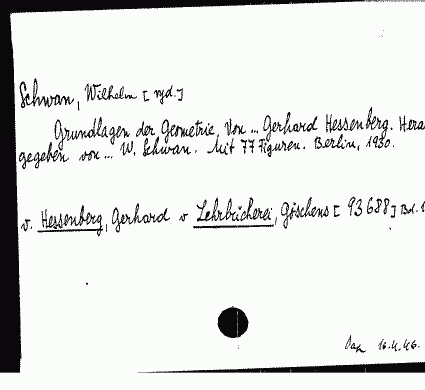 Schwan, Wilhelm [wyd.]
Grundlagen der Geometrie. Von ... Gerhard Hessenberg. Hera
gegeben von ... W. Schwan. Mit 77 Figuren. Berlin, 1930.
v. Hessenberg, Gerhard v Lehrbücherei, Göschens [93688] Bd. 1
16.4.46.